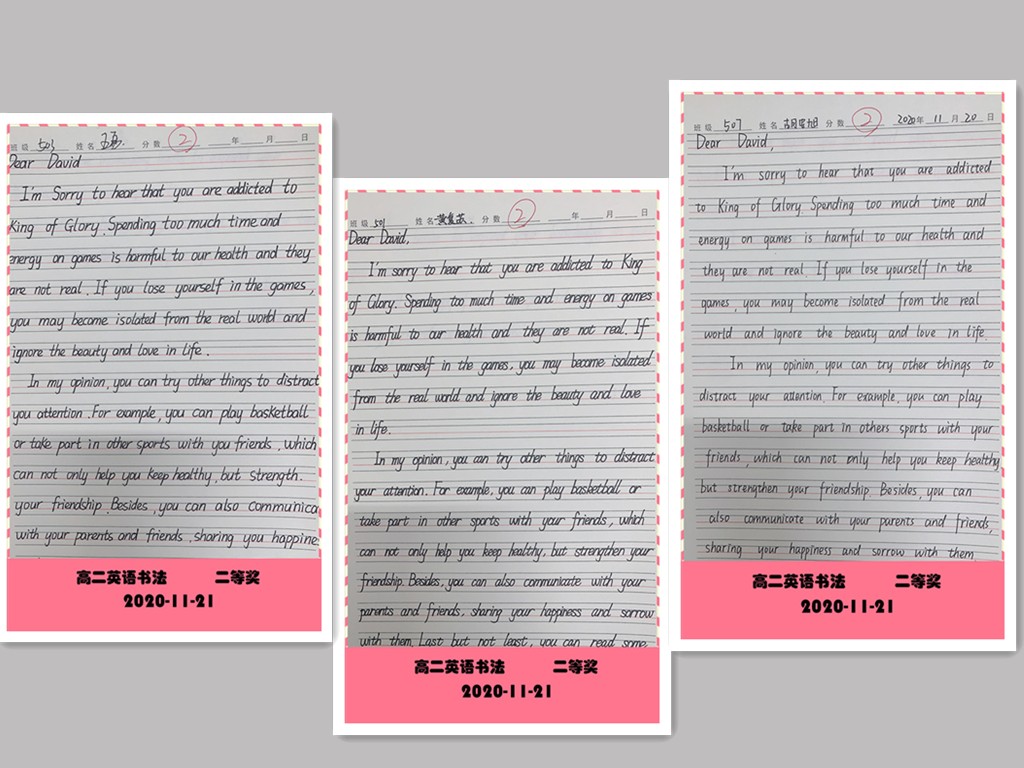 班级 503 姓名 分数 2 年 月 日
Dear David
I'm Sorry to hear that you are addicted to
King of Glory. Spending too much time and
energy on games is harmful to our health and they
are not real. If you lose yourself in the games,
you may become isolated from the real world and
ignore the beauty and love in life.
In my opinion, you can try other things to distract
you attention. For example, you can play basketball
or take part in other sports with you friends, which
can not only help you keep healthy, but strength.
your friendship. Besides, you can also communica
with your parents and friends, sharing you happine
高二英语书法 二等奖
2020-11-21
班级 501 姓名 分数 2 年 月 日
Dear David,
I'm sorry to hear that you are addicted to King
of Glory. Spending too much time and energy on games
is harmful to our health and they are not real. If
you lose yourself in the games, you may become isolated
from the real world and ignore the beauty and love
in life.
In my opinion, you can try other things to distract
your attention. For example, you can play basketball or
take part in other sports with your friends, which
can not only help you keep healthy, but strengthen your
friendship. Besides, you can also communicate with your
parents and friends, sharing your happiness and sorrow
with them. Last but not least, you can read some
高二英语书法 二等奖
2020-11-21
班级 507 姓名 分数 2 2020年 11月 20日
Dear David,
I'm sorry to hear that you are addicted
to King of Glory. Spending too much time and
energy on games is harmful to our health and
they are not real. If you lose yourself in the
games, you may become isolated from the real
world and ignore the beauty and love in life.
In my opinion, you can try other things to
distract your attention. For example, you can play
basketball or take part in others sports with your
friends, which can not only help you keep healthy
but strengthen your friendship. Besides, you can
also communicate with your parents and friends,
sharing your happiness and sorrow with them
高二英语书法 二等奖
2020-11-21